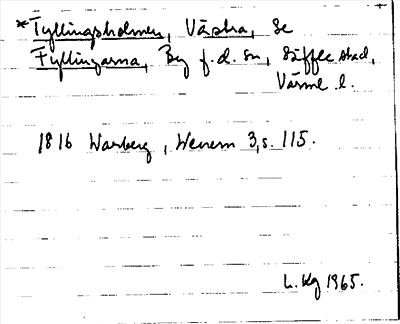 *Tyllingsholmen, Västra, Se
Tyllingarna, By f.d. sn, Säffle stad,
Värml. l.
1816 Warberg, Wenern 3, s. 115.
L. Kg 1965.